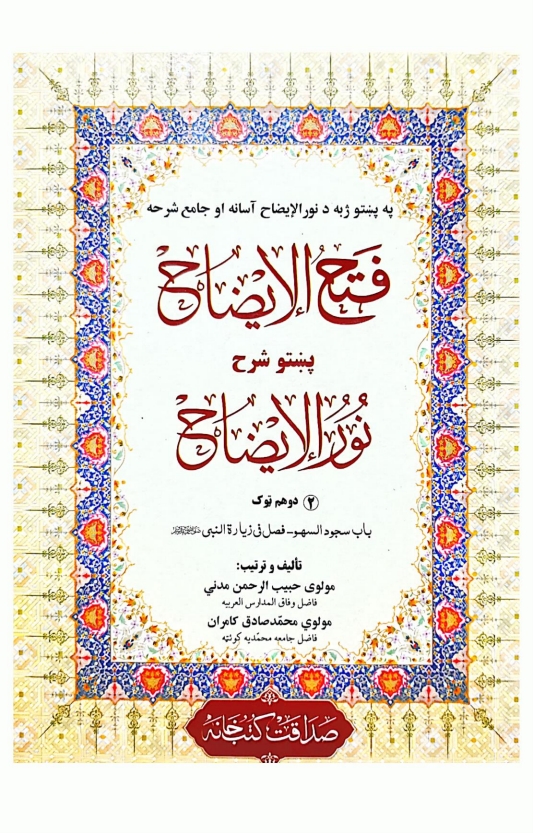 په پښتو ژبه د نورالإيضاح آسانه او جامع شرحه
فَتحُ الإيْضَاحْ
پښتو شرح
نُورُ الإيْضَاحْ
۲ دوهم ټوک
باب سجود السهو - فصل فی زیارة النبی ﷺ
تأليف و ترتيب:
مولوی حبيب الرحمن مدني
فاضل وفاق المدارس العربيه
مولوي محمّدصادق کامران
فاضل جامعه محمّديه کوئټه
صداقت کتب خانه